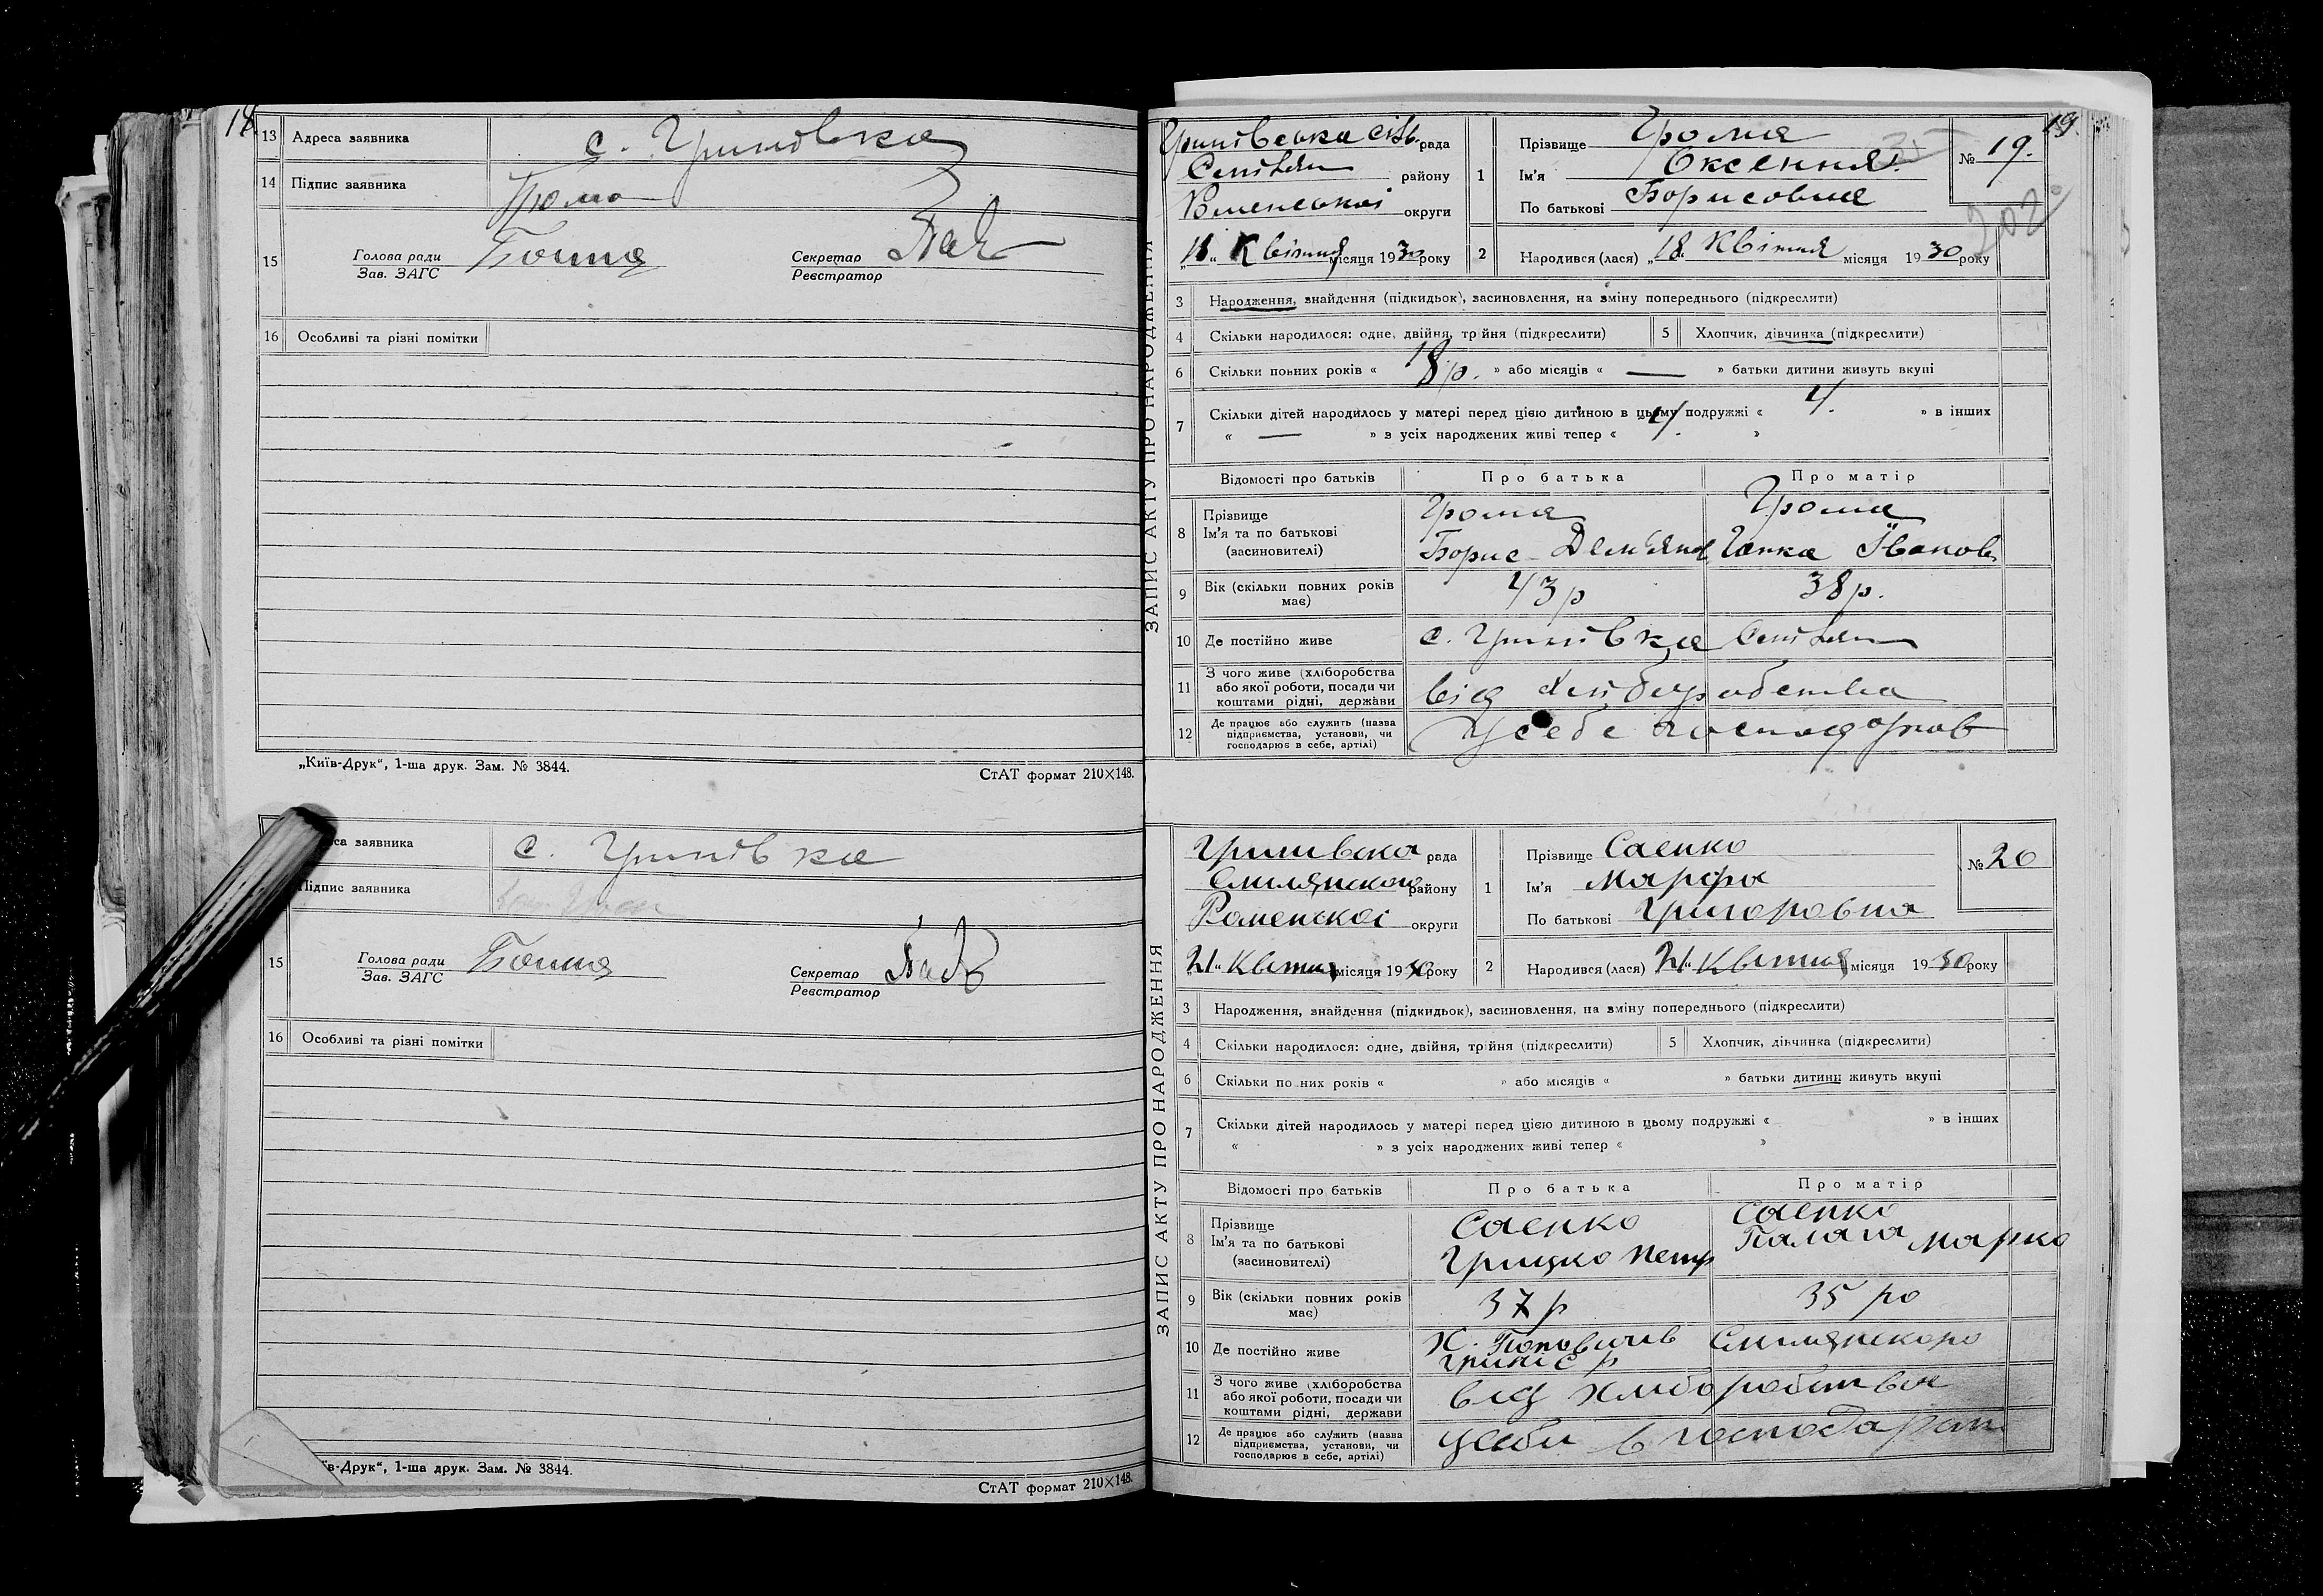 18
13 Адреса заявника с. Гринівка
14 Підпис заявника
15 Голова ради Секретар
Зав. ЗАГС Реєстратор
16 Особливі та різні помітки
„Київ-Друк“, 1-ша друк. Зам. № 3844.
СтАТ формат 210×148.
са заявника с. Гринівка
Підпис заявника
15 Голова ради Секретар
Зав. ЗАГС Реєстратор
16 Особливі та різні помітки
їв-Друк“, 1-ша друк. Зам. № 3844.
СтАТ формат 210×148.
19
ЗАПИС АКТУ ПРО НАРОДЖЕННЯ
рада
району
округи
„18“ Квітня місяця 1930 року
1 Прізвище
Ім'я Оксенія
По батькові Борисовна
№ 19.
202
2 Народився (лася) „18“ Квітня місяця 1930 року
3 Народження, знайдення (підкидьок), засиновлення, на зміну попереднього (підкреслити)
4 Скільки народилося: одне, двійня, трійня (підкреслити) 5 Хлопчик, дівчинка (підкреслити)
6 Скільки повних років « 18 р. » або місяців « — » батьки дитини живуть вкупі
7 Скільки дітей народилось у матері перед цією дитиною в цьому подружжі « 4. » в інших
« — » з усіх народжених живі тепер « 4. »
Відомості про батьків Про батька Про матір
8 Прізвище
Ім'я та по батькові Борис Ганка Іванов
(засиновителі)
9 Вік (скільки повних років має) 43 р 38 р.
10 Де постійно живе с. Гринівка
11 З чого живе (хліборобства або якої роботи, посади чи коштами рідні, держави від хліборобства
12 Де працює або служить (назва підприємства, установи, чи господарює в себе, артілі) У себе
ЗАПИС АКТУ ПРО НАРОДЖЕННЯ
рада
району
Роменскої округи
„21“ Квітня місяця 1930 року
1 Прізвище Саенко
Ім'я Марфа
По батькові Григоровна
№ 20
2 Народився (лася) „21“ Квітня місяця 1930 року
3 Народження, знайдення (підкидьок), засиновлення, на зміну попереднього (підкреслити)
4 Скільки народилося: одне, двійня, трійня (підкреслити) 5 Хлопчик, дівчинка (підкреслити)
6 Скільки по них років « » або місяців « » батьки дитини живуть вкупі
7 Скільки дітей народилось у матері перед цією дитиною в цьому подружжі « » в інших
« » з усіх народжених живі тепер « »
Відомості про батьків Про батька Про матір
8 Прізвище Саенко Саенко
Ім'я та по батькові Грицко Петр Палага Марко
(засиновителі)
9 Вік (скільки повних років має) 37 р 35 ро
10 Де постійно живе Х.
11 З чого живе (хліборобства або якої роботи, посади чи коштами рідні, держави від
12 Де працює або служить (назва підприємства, установи, чи господарює в себе, артілі)